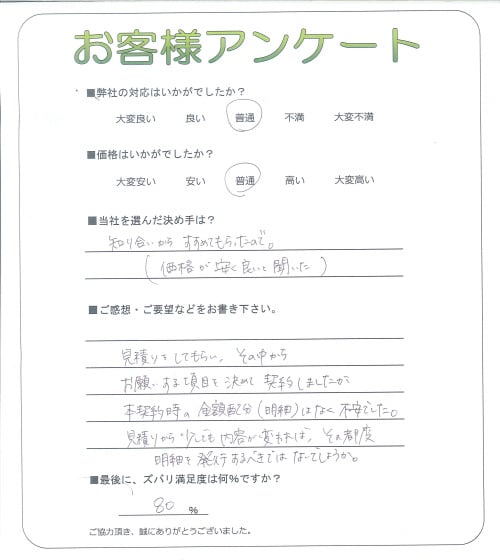 お客様アンケート
■弊社の対応はいかがでしたか？
大変良い 良い 普通 不満 大変不満
■価格はいかがでしたか？
大変安い 安い 普通 高い 大変高い
■当社を選んだ決め手は？
知り合いから すすめてもらったので。
(価格が安く良いと聞いた)
■ご感想・ご要望などをお書き下さい。
見積りをしてもらい、その中から
お願いする項目を決めて 契約しましたが
本契約時の 金額配分(明細)はなく 不安でした。
見積りから 少しでも 内容が変われば、その都度
明細を発行するべきでは ないでしょうか。
■最後に、ズバリ満足度は何％ですか？
80 ％
ご協力頂き、誠にありがとうございました。